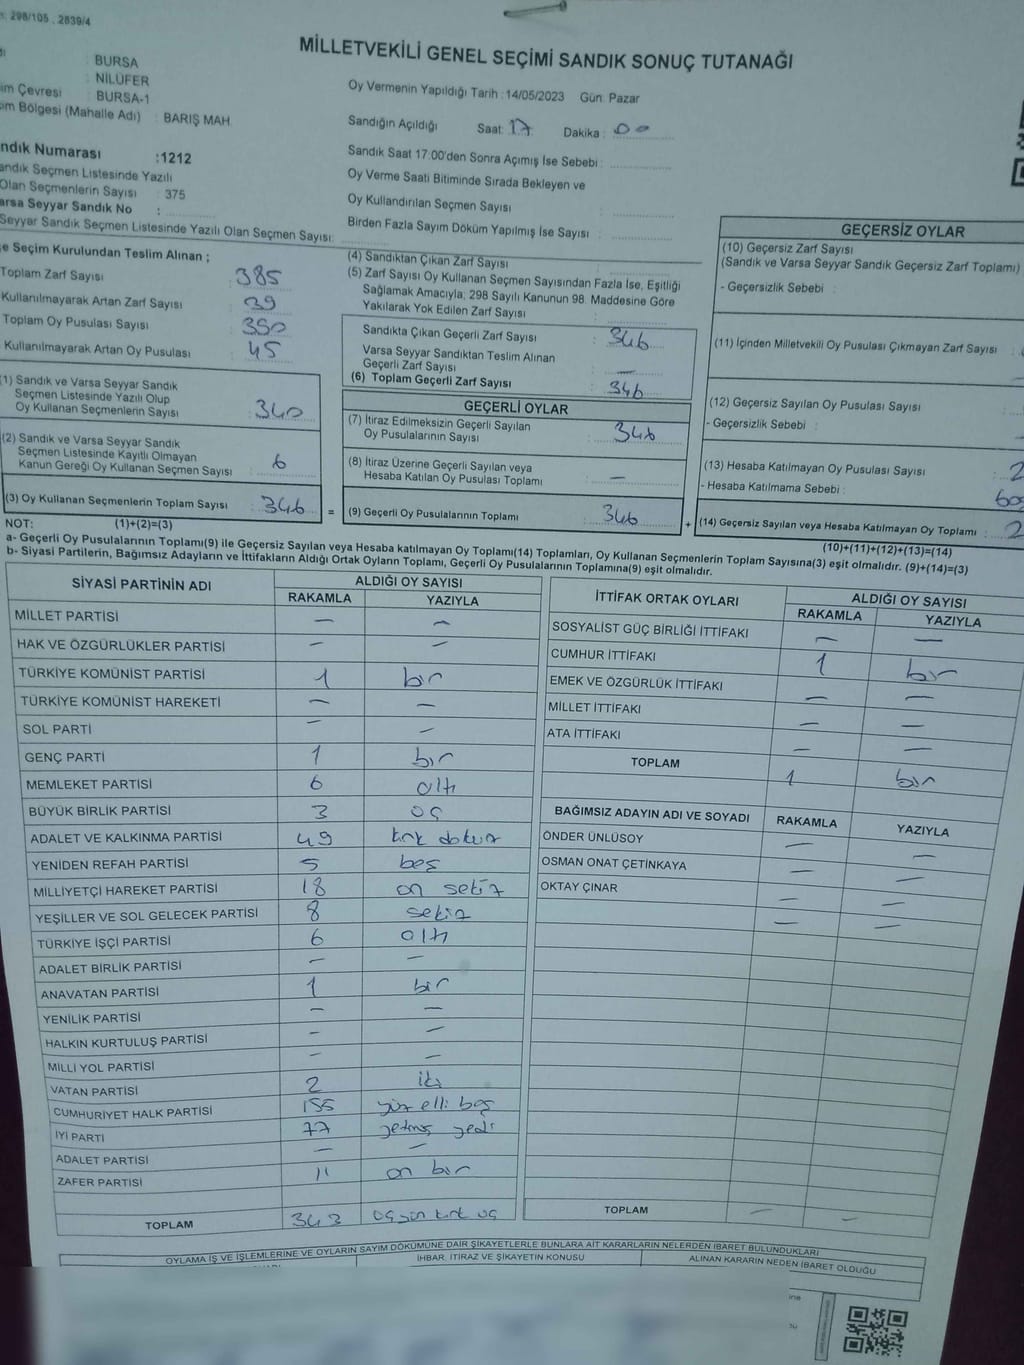 298/105 . 2839/4
MİLLETVEKİLİ GENEL SEÇİMİ SANDIK SONUÇ TUTANAĞI
: BURSA
: NİLÜFER
im Çevresi : BURSA-1
im Bölgesi (Mahalle Adı) : BARIŞ MAH.
ndık Numarası :1212
andık Seçmen Listesinde Yazılı
Olan Seçmenlerin Sayısı : 375
arsa Seyyar Sandık No :
Seyyar Sandık Seçmen Listesinde Yazılı Olan Seçmen Sayısı:
Oy Vermenin Yapıldığı Tarih :14/05/2023 Gün: Pazar
Sandığın Açıldığı Saat: 17 Dakika : 00
Sandık Saat 17:00'den Sonra Açımış İse Sebebi :
Oy Verme Saati Bitiminde Sırada Bekleyen ve
Oy Kullandırılan Seçmen Sayısı :
Birden Fazla Sayım Döküm Yapılmış İse Sayısı :
e Seçim Kurulundan Teslim Alınan ;
Toplam Zarf Sayısı : 385
Kullanılmayarak Artan Zarf Sayısı : 39
Toplam Oy Pusulası Sayısı : 390
Kullanılmayarak Artan Oy Pusulası : 45
(1) Sandık ve Varsa Seyyar Sandık
Seçmen Listesinde Yazılı Olup
Oy Kullanan Seçmenlerin Sayısı : 340
(2) Sandık ve Varsa Seyyar Sandık
Seçmen Listesinde Kayıtlı Olmayan
Kanun Gereği Oy Kullanan Seçmen Sayısı : 6
(3) Oy Kullanan Seçmenlerin Toplam Sayısı : 346
(4) Sandıktan Çıkan Zarf Sayısı :
(5) Zarf Sayısı Oy Kullanan Seçmen Sayısından Fazla İse, Eşitliği
Sağlamak Amacıyla; 298 Sayılı Kanunun 98. Maddesine Göre
Yakılarak Yok Edilen Zarf Sayısı :
Sandıkta Çıkan Geçerli Zarf Sayısı : 346
Varsa Seyyar Sandıktan Teslim Alınan
Geçerli Zarf Sayısı : —
(6) Toplam Geçerli Zarf Sayısı : 346
GEÇERLİ OYLAR
(7) İtiraz Edilmeksizin Geçerli Sayılan
Oy Pusulalarının Sayısı : 346
(8) İtiraz Üzerine Geçerli Sayılan veya
Hesaba Katılan Oy Pusulası Toplamı : —
= (9) Geçerli Oy Pusulalarının Toplamı : 346
GEÇERSİZ OYLAR
(10) Geçersiz Zarf Sayısı
(Sandık ve Varsa Seyyar Sandık Geçersiz Zarf Toplamı)
- Geçersizlik Sebebi :
(11) İçinden Milletvekili Oy Pusulası Çıkmayan Zarf Sayısı :
(12) Geçersiz Sayılan Oy Pusulası Sayısı :
- Geçersizlik Sebebi :
(13) Hesaba Katılmayan Oy Pusulası Sayısı : 2
- Hesaba Katılmama Sebebi :
+ (14) Geçersiz Sayılan veya Hesaba Katılmayan Oy Toplamı : 2
NOT: (1)+(2)=(3)
(10)+(11)+(12)+(13)=(14)
a- Geçerli Oy Pusulalarının Toplamı(9) ile Geçersiz Sayılan veya Hesaba katılmayan Oy Toplamı(14) Toplamları, Oy Kullanan Seçmenlerin Toplam Sayısına(3) eşit olmalıdır. (9)+(14)=(3)
b- Siyasi Partilerin, Bağımsız Adayların ve İttifakların Aldığı Ortak Oyların Toplamı, Geçerli Oy Pusulalarının Toplamına(9) eşit olmalıdır.
SİYASİ PARTİNİN ADI ALDIĞI OY SAYISI
RAKAMLA YAZIYLA
MİLLET PARTİSİ — —
HAK VE ÖZGÜRLÜKLER PARTİSİ — —
TÜRKİYE KOMÜNİST PARTİSİ 1 bir
TÜRKİYE KOMÜNİST HAREKETİ — —
SOL PARTİ — —
GENÇ PARTİ 1 bir
MEMLEKET PARTİSİ 6 altı
BÜYÜK BİRLİK PARTİSİ 3 üç
ADALET VE KALKINMA PARTİSİ 49 kırk dokuz
YENİDEN REFAH PARTİSİ 5 beş
MİLLİYETÇİ HAREKET PARTİSİ 18 on sekiz
YEŞİLLER VE SOL GELECEK PARTİSİ 8 sekiz
TÜRKİYE İŞÇİ PARTİSİ 6 altı
ADALET BİRLİK PARTİSİ — —
ANAVATAN PARTİSİ 1 bir
YENİLİK PARTİSİ — —
HALKIN KURTULUŞ PARTİSİ — —
MİLLİ YOL PARTİSİ — —
VATAN PARTİSİ 2 iki
CUMHURİYET HALK PARTİSİ 155 yüz elli beş
İYİ PARTİ 77 yetmiş yedi
ADALET PARTİSİ — —
ZAFER PARTİSİ 11 on bir
TOPLAM 343 üçyüz kırk üç
İTTİFAK ORTAK OYLARI ALDIĞI OY SAYISI
RAKAMLA YAZIYLA
SOSYALİST GÜÇ BİRLİĞİ İTTİFAKI — —
CUMHUR İTTİFAKI 1 bir
EMEK VE ÖZGÜRLÜK İTTİFAKI — —
MİLLET İTTİFAKI — —
ATA İTTİFAKI — —
TOPLAM 1 bir
BAĞIMSIZ ADAYIN ADI VE SOYADI RAKAMLA YAZIYLA
ÖNDER ÜNLÜSOY — —
OSMAN ONAT ÇETİNKAYA — —
OKTAY ÇINAR — —
— —
TOPLAM — —
OYLAMA İŞ VE İŞLEMLERİNE VE OYLARIN SAYIM DÖKÜMÜNE DAİR ŞİKAYETLERLE BUNLARA AİT KARARLARIN NELERDEN İBARET BULUNDUKLARI
İHBAR, İTİRAZ VE ŞİKAYETİN KONUSU ALINAN KARARIN NEDEN İBARET OLDUĞU